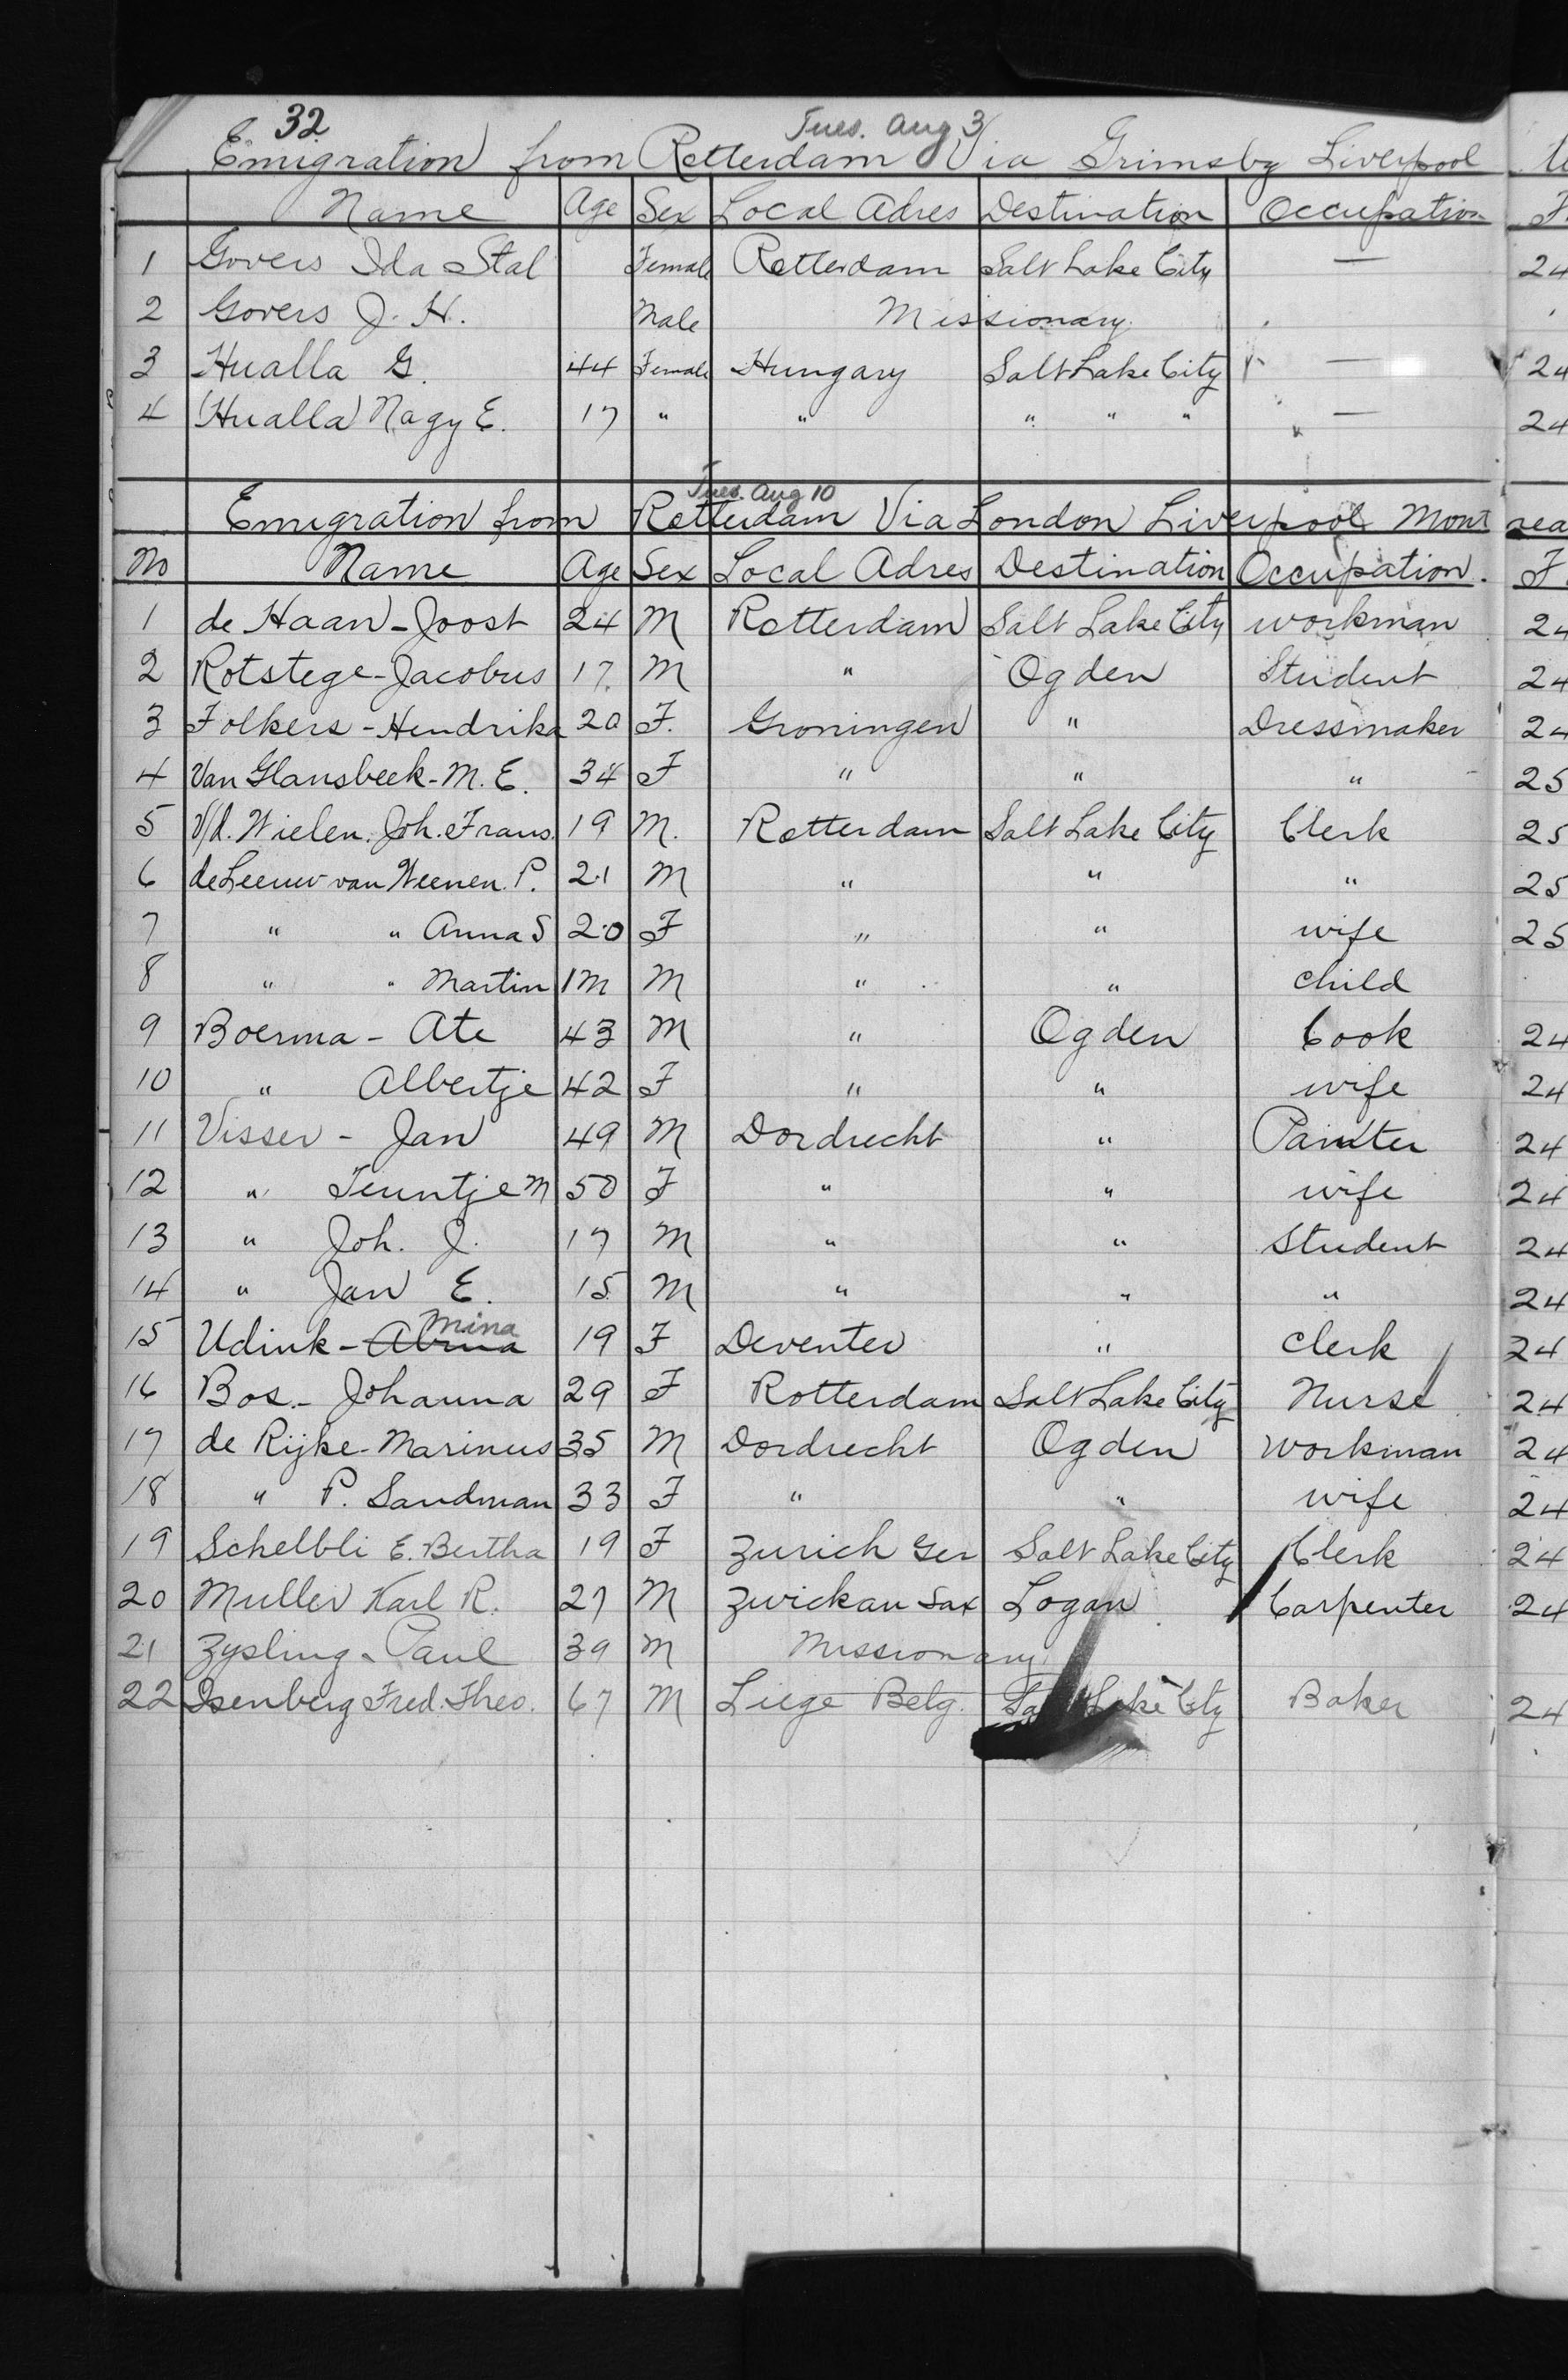 32
Tues. Aug 3
Emigration from Rotterdam Via Grimsby Liverpool
Name Age Sex Local Adres Destination Occupation F.
1 Govers Ida Stal Female Rotterdam Salt Lake City — 24
2 Govers J. H. Male Missionary
3 Hualla G. 44 Female Hungary Salt Lake City — 24
4 (Hualla) Nagy E. 17 " " " " " — 24
Tues. Aug 10
Emigration from Rotterdam Via London Liverpool Mont rea
No Name Age Sex Local Adres Destination Occupation. F.
1 de Haan - Joost 24 M Rotterdam Salt Lake City workman 24
2 Rotstege - Jacobus 17. M " Ogden Student 24
3 Folkers - Hendrika 20 F. Groningen " Dressmaker 24
4 Van Glansbeek - M. E. 34 F " " " 25
5 V/d. Wielen. Joh. Frans. 19 M. Rotterdam Salt Lake City Clerk 25
6 de Leeuw van Weenen. P. 21 M " " " 25
7 " " Anna S 20 F " " wife 25
8 " " Martin 1M M " " child
9 Boerma - Ate 43 M " Ogden Cook 24
10 " Albertje 42 F " " wife 24
11 Visser - Jan 49 M Dordrecht " Painter 24
12 " Teuntje M 50 F " " wife 24
13 " Joh. J. 17 M " " Student 24
14 " Jan E. 15 M " " " 24
15 Udink - Mina 19 F Deventer " Clerk 24
16 Bos. - Johanna 29 F Rotterdam Salt Lake City Nurse 24
17 de Rijke - Marinus 35 M Dordrecht Ogden Workman 24
18 " P. Sandman 33 F " " wife 24
19 Schelbli E. Bertha 19 F Zurich Ger Salt Lake City Clerk 24
20 Muller Karl R. 27 M Zwickau Sax Logan Carpenter 24
21 Zysling - Paul 39 M Missionary
22 Isenberg Fred. Theo. 67 M Liege Belg. Salt Lake City Baker 24